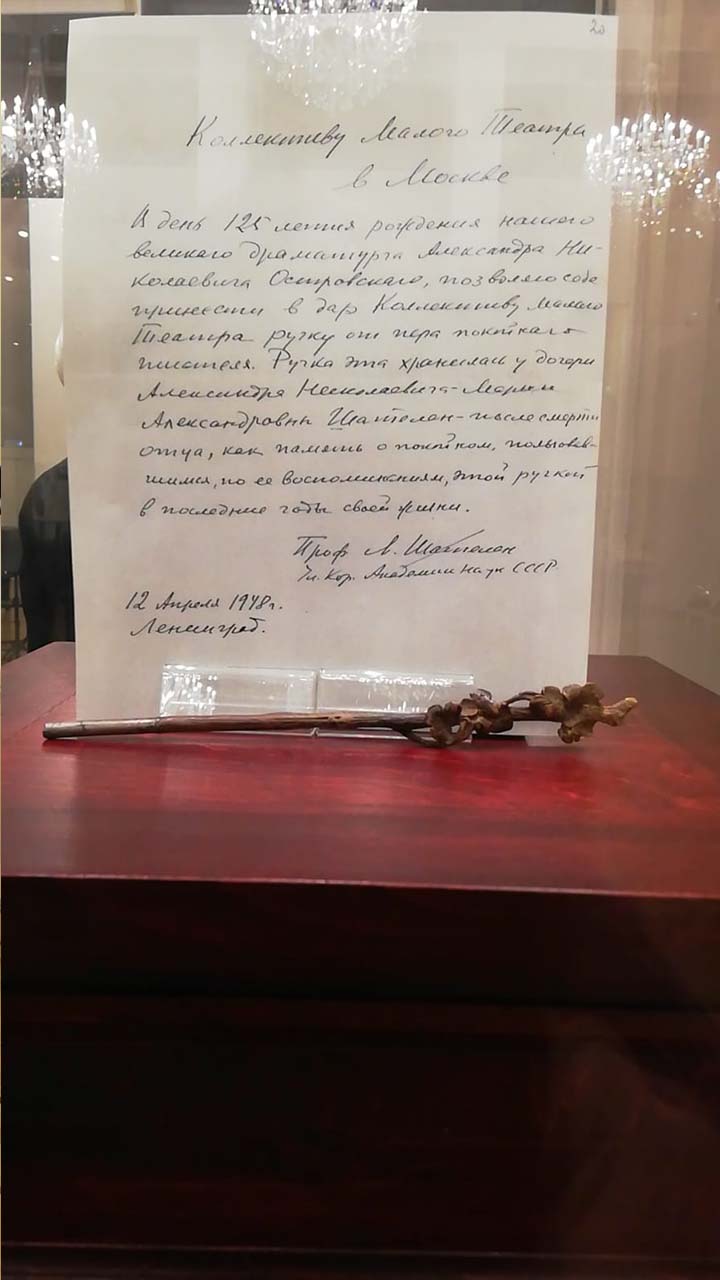 20
Коллективу Малого Театра
в Москве
В день 125 летия рождения нашего
великого драматурга Александра Ни-
колаевича Островского, позволяю себе
принести в дар Коллективу Малого
Театра ручку от пера покойного
писателя. Ручка эта хранилась у дочери
Александра Николаевича - Марии
Александровны Шателен - после смерти
отца, как память о покойном, пользовав-
шимся, по ее воспоминаниям, этой ручкой
в последние годы своей жизни.
Проф. М. Шателен
Чл. Кор. Академии Наук СССР
12 Апреля 1948 г.
Ленинград.